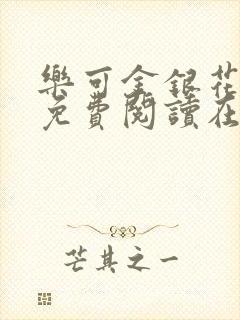 樂可金銀花
免費閱讀在
芒其之一